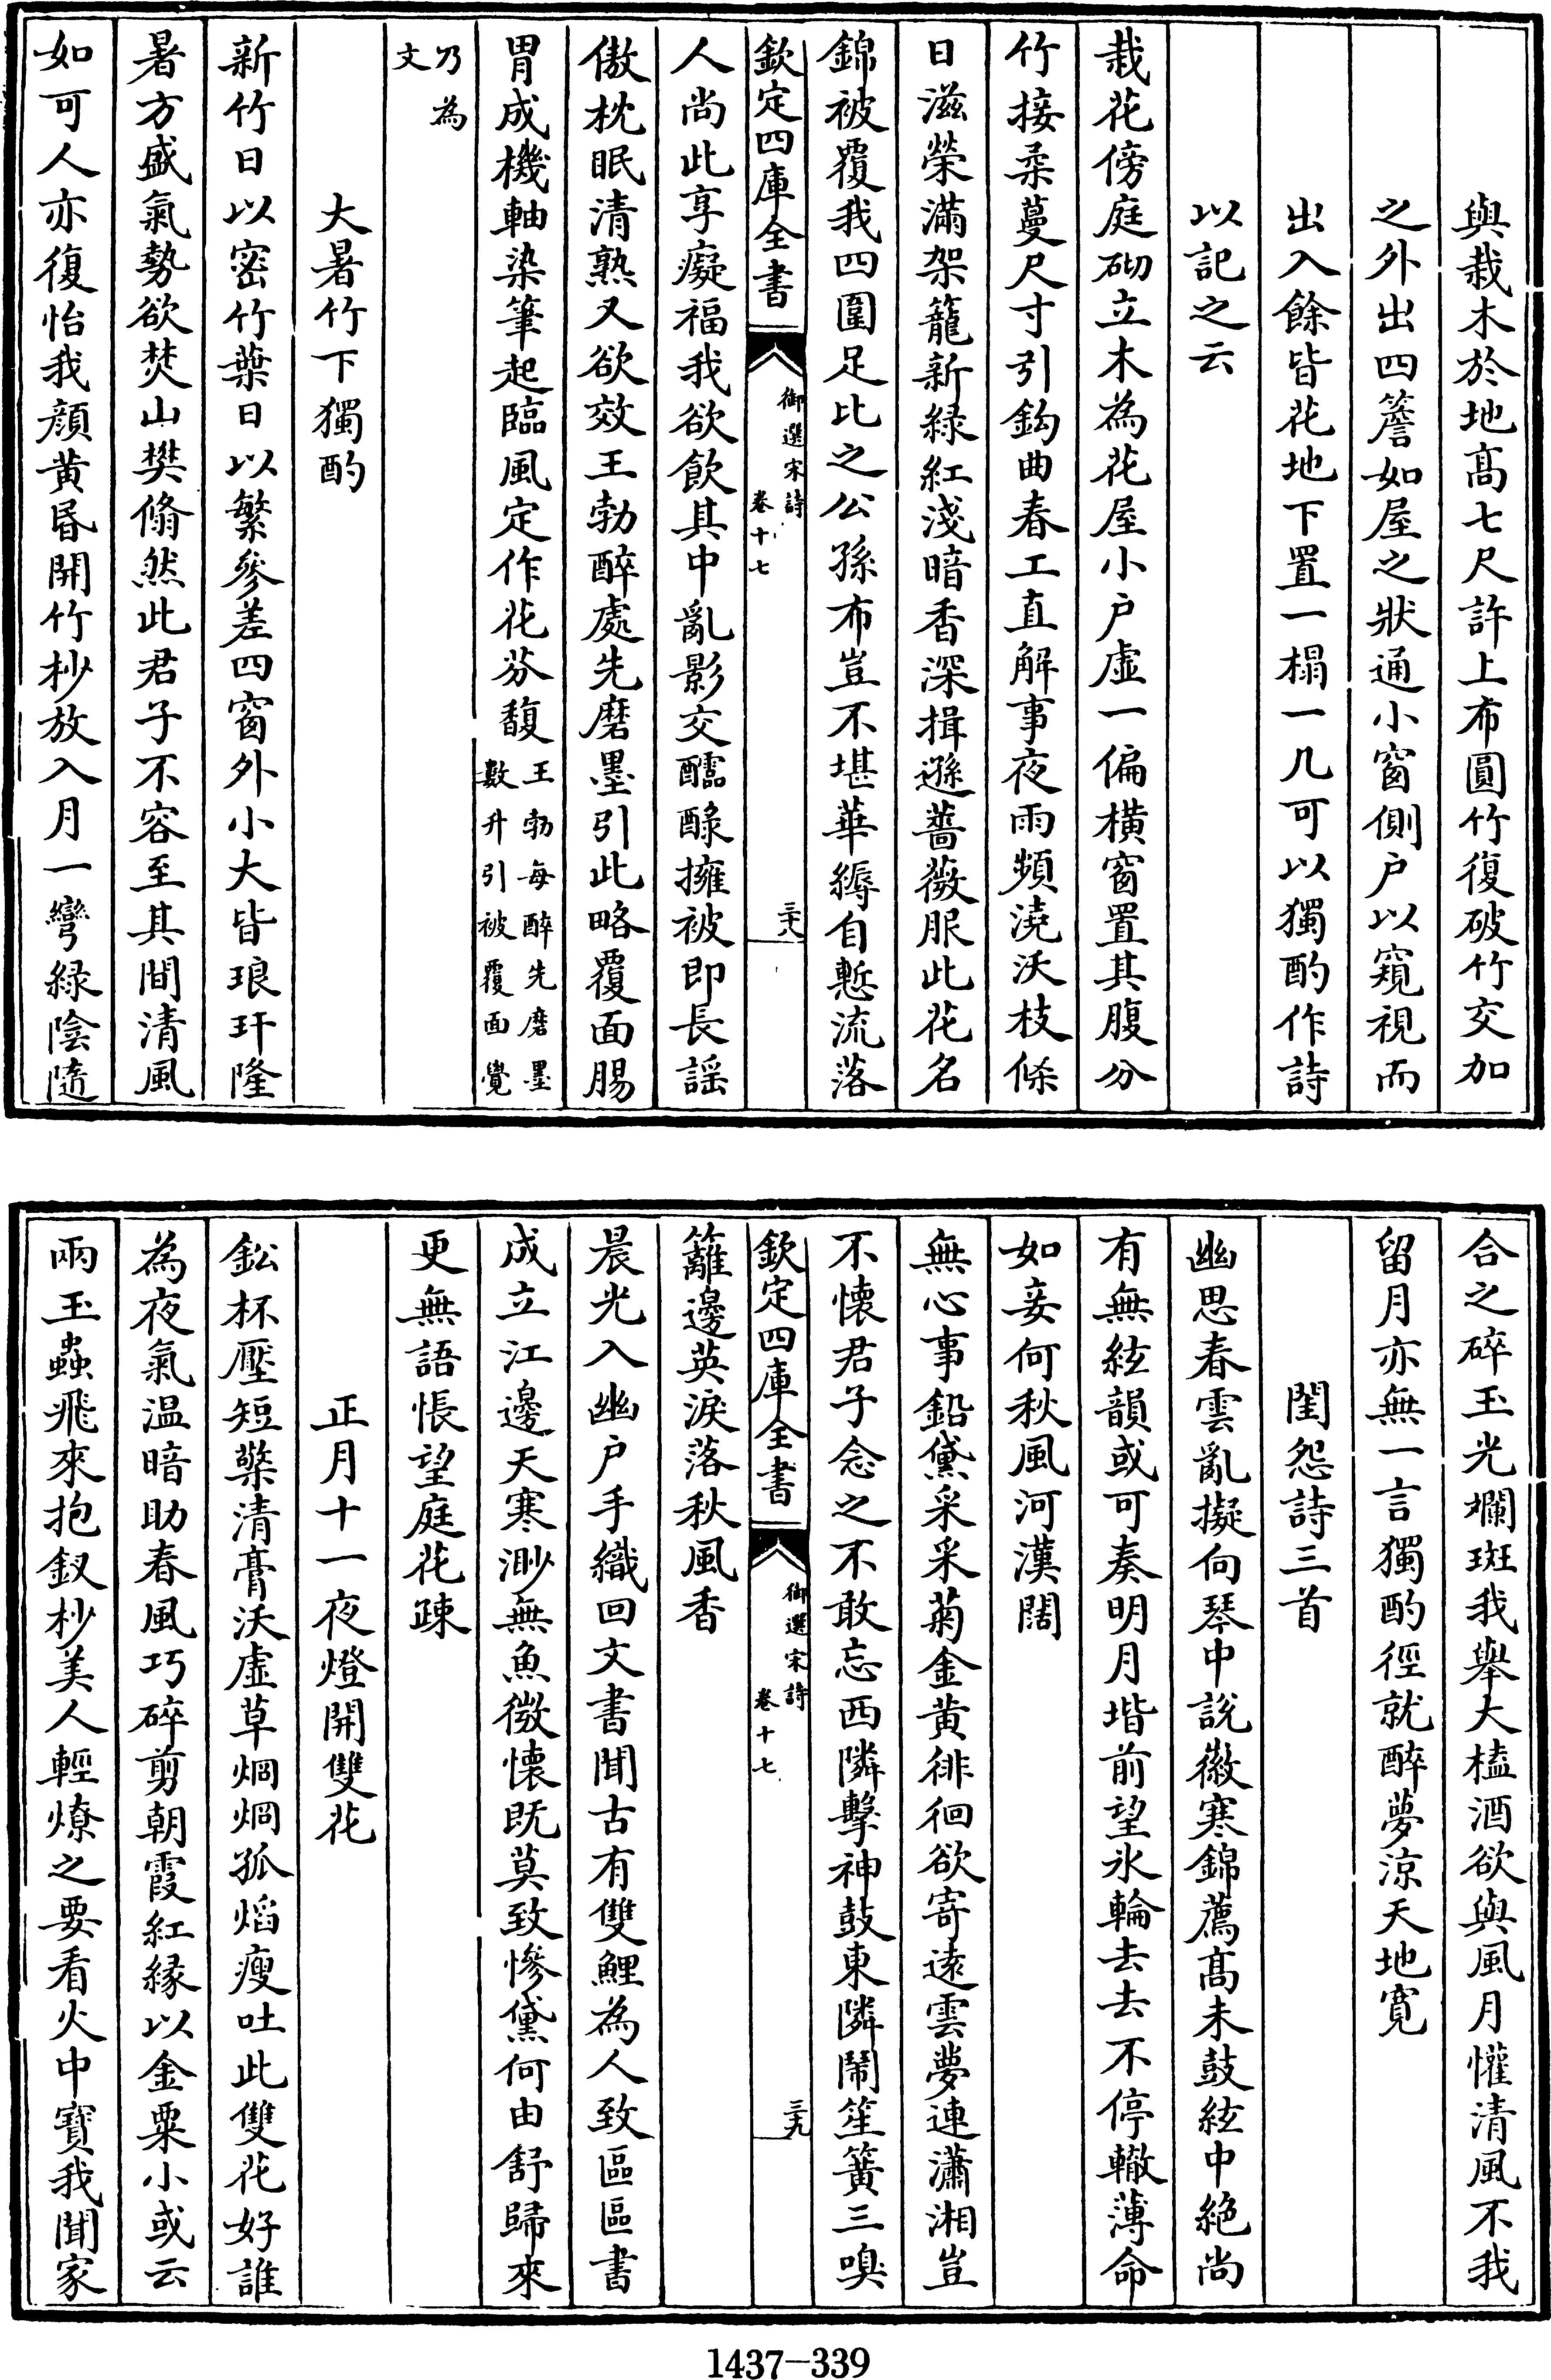 與栽木於地髙七尺許上布圓竹復破竹交加
之外出四簷如屋之狀通小窗側户以窺視而
出入餘皆花地下置一榻一几可以獨酌作詩
以記之云
栽花傍庭砌立木為花屋小户虚一偏横窗置其腹分
竹接柔蔓尺寸引鈎曲春工直解事夜雨頻澆沃枝條
日滋榮滿架籠新緑紅淺暗香深揖遜薔薇服此花名
錦被覆我四圍足比之公孫布豈不堪華縟自慙流落
欽定四庫全書
御選宋詩
卷十七
三十八
人尚此享癡福我欲飲其中亂影交醽醁擁被即長謡
傲枕眠清熟又欲效王勃醉處先磨墨引此略覆面腸
胃成機軸染筆起臨風定作花芬馥王勃每醉先磨墨
數升引被覆面覺
乃為
文
大暑竹下獨酌
新竹日以密竹葉日以繁參差四窗外小大皆琅玕隆
暑方盛氣勢欲焚山樊翛然此君子不容至其間清風
如可人亦復怡我顔黄昬開竹杪放入月一彎緑陰隨
合之碎玉光斕斑我舉大榼酒欲與風月懽清風不我
留月亦無一言獨酌徑就醉夢涼天地寛
閨怨詩三首
幽思春雲亂擬向琴中說徽寒錦薦髙未鼓絃中絶尚
有無絃韻或可奏明月堦前望氷輪去去不停轍薄命
如妾何秋風河漢闊
無心事鉛黛采采菊金黄徘徊欲寄逺雲夢連瀟湘豈
不懷君子念之不敢忘西隣擊神鼓東隣鬧笙簧三嗅
欽定四庫全書
御選宋詩
卷十七
三十九
籬邊英淚落秋風香
晨光入幽户手織回文書聞古有雙鯉為人致區區書
成立江邊天寒渺無魚微懐既莫致慘黛何由舒歸來
更無語悵望庭花疎
正月十一夜燈開雙花
鈆杯壓短檠清膏沃虚草烱烱孤焰瘦吐此雙花好誰
為夜氣温暗助春風巧碎剪朝霞紅緣以金粟小或云
兩玉蟲飛來抱釵杪美人輕燎之要看火中寳我聞家
1437-339